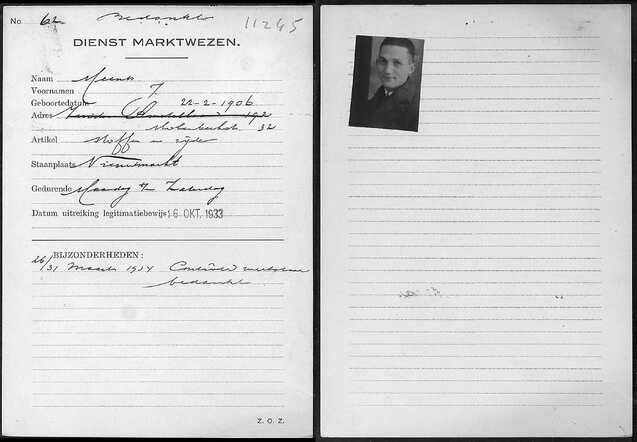 No. 62 Bedankt 11245
DIENST MARKTWEZEN.
Naam Meents
Voornamen J
Geboortedatum 22-2-1906
Adres 192
32
Artikel stoffen en zijde
Staanplaats Nieuwmarkt
Gedurende Maandag t/m Zaterdag
Datum uitreiking legitimatiebewijs 16 OKT. 1933
BIJZONDERHEDEN:
26/31 Maart 1934
bedankt
Z. O. Z.